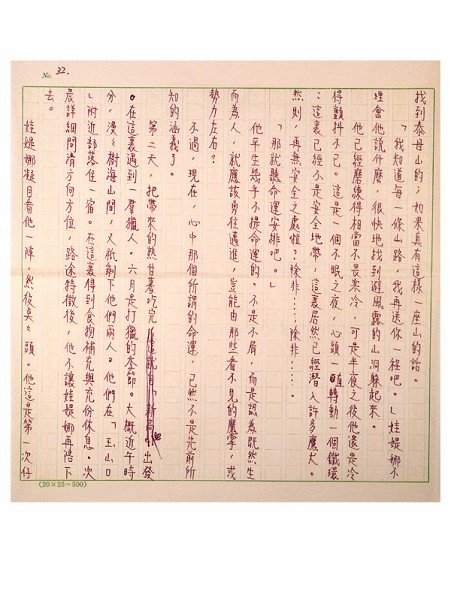 No. 32.
找到泰母山的;如果真有這樣一座山的話。
「我知道每一條山路,我再送你一程吧。」娃媞娜不
理會他說什麼,很快地找到避風露的山洞躲起來。
他已經磨練得相當不畏寒冷,可是半夜之後他還是冷
得顫抖不已。這是一個不眠之夜,心頭直轉動一個鐵環
:這裏已經不是安全地帶,這裏居然已經潛入許多鷹犬。
然則,再無安全之處啦?除非……除非……。
「那就聽命運安排吧。」
他平生幾乎不提命運的。不是不屑,而是認為既然生
而為人,就應該勇往邁進,豈能由那些看不見的魔掌,或
勢力左右?
不過,現在,心中那個所謂的命運,已然不是先前所
知的涵義了。
第二天,把帶來的熟甘薯吃完出發
。在這裏遇到一羣獵人。六月是打獵的季節。大概近午時
分,漫々樹海山間,又祇剩下他們兩人。他們在「玉山口
」附近部落住一宿。在這裏得到食物補充與充份休息。次
晨詳細問清方向方位,路途特徵後,他不讓娃媞娜再陪下
去。
娃媞娜凝目看他一陣,然後點々頭。他這是第一次仔
(20×25=500)